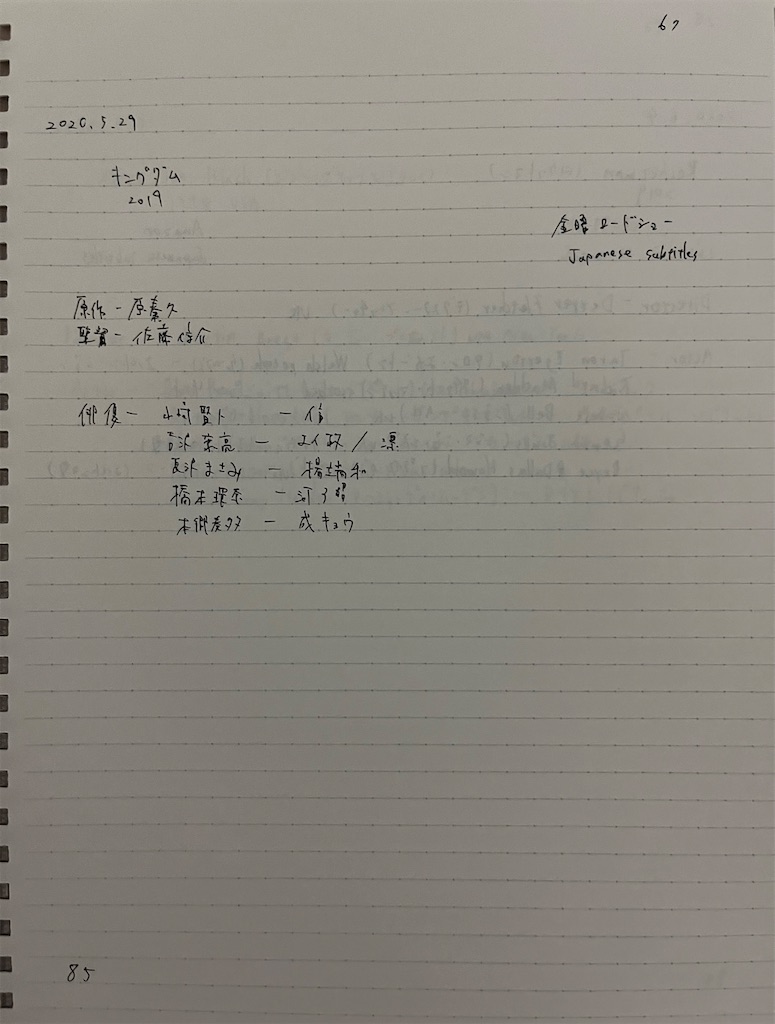 67
2020.5.29
キングダム
2019
金曜ロードショー
Japanese subtitles
原作-原泰久
監督-佐藤信介
俳優- 山﨑賢人 - 信
吉沢亮 - えい政/漂
長沢まさみ - 楊端和
橋本環奈 - 河了貂
本郷奏多 - 成キョウ
85